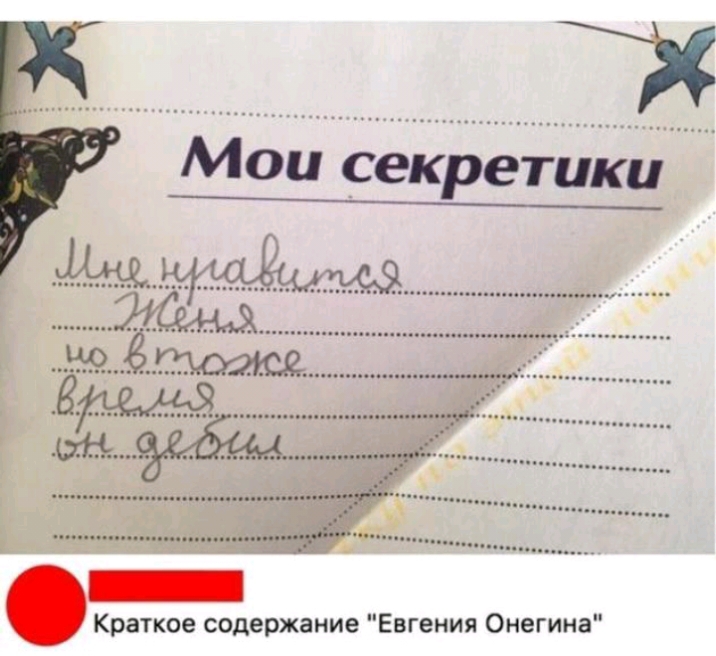 Мои секретики
Мне нравится
Женя
но втоже
время
он дебил
Краткое содержание "Евгения Онегина"